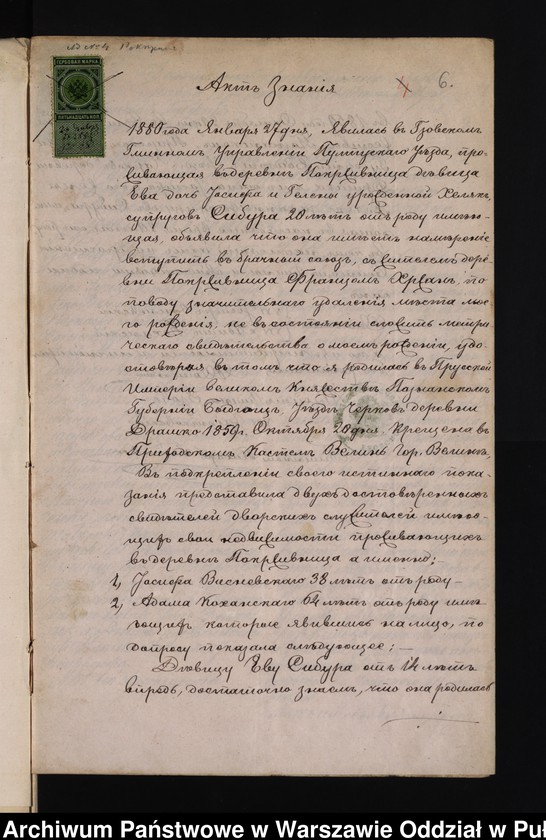 6.
ГЕРБОВАЯ МАРКА
ПЯТЬДЕСЯТЪ КОП
Актъ Знанія
1880 года Января 27 дня, явилась въ Гзовскомъ
Гминномъ Управленіи Пултускаго Уѣзда, про-
живающая въ деревнѣ Покржывница дѣвица
Ева дочь Іосифа и Гелены урожденной Хелякъ,
супруговъ Сибура 20 лѣтъ отъ роду имѣю-
щая, объявила что она имѣетъ намѣреніе
вступить въ брачный союзъ, съ жителемъ дере-
вни Покржывница Францомъ Хржанъ, по
поводу значительнаго удаленія мѣста мое-
го рожденія, не въ состояніи сложить метри-
ческаго свидѣтельства о моемъ рожденіи, удо-
стовѣряя въ томъ, что я родилась въ Прусской
Имперіи Великомъ Княжествѣ Познанскомъ
Губерніи Быдгощъ Уѣздѣ Черковъ деревни
Драшко 1859 г. Октября 20 дня. Крещена въ
Приходскомъ Костелѣ Велинь Гор. Велинь.
Въ подкрѣпленіи своего истиннаго пока-
занія представила двухъ достовѣренныхъ
свидѣтелей дворскихъ служителей имѣю-
щихъ свои недвижимости проживающихъ
въ деревнѣ Покрживница а именно:
1, Іосифа Висневскаго 38 лѣтъ отъ роду
2, Адама Коханскаго 64 лѣтъ отъ роду имѣ-
ющихъ которые явившись на лицо, по
допросу показала слѣдующее; —
Дѣвицу Еву Сибура отъ 14 лѣтъ
впредь, достаточно знаемъ, что она родилась
Archiwum Państwowe w Warszawie Oddział w Puł